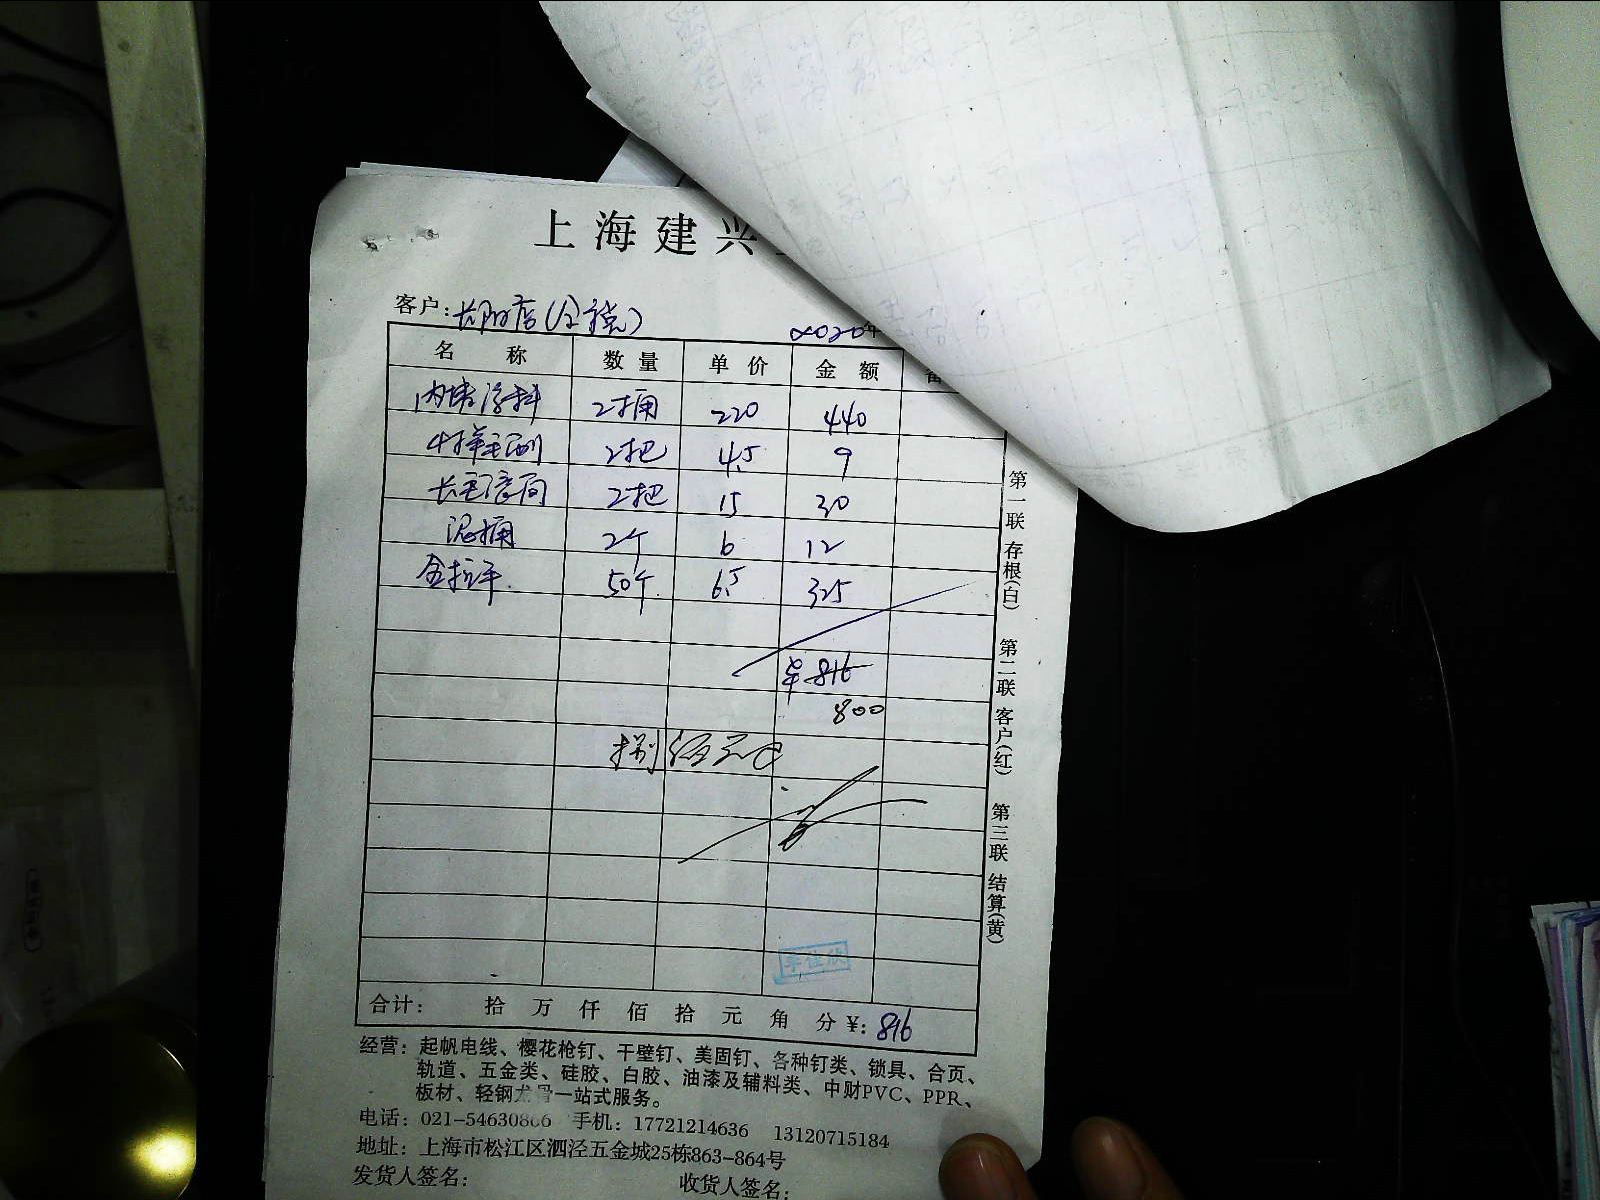 上海建兴
客户: 长阳店(公讠税)
2020年
名 称 数 量 单 价 金 额
内墙涂料 2桶 220 440
羊毛刷 2把 4.5 9
长毛滚筒 2把 15 30
泥桶 2个 6 12
金拉手 50个 6.5 325
单816
800
捌佰元
合计: 拾 万 仟 佰 拾 元 角 分 ¥: 816
第一联 存根(白) 第二联 客户(红) 第三联 结算(黄)
经营: 起帆电线、樱花枪钉、干壁钉、美固钉、各种钉类、锁具、合页、
轨道、五金类、硅胶、白胶、油漆及辅料类、中财PVC、PPR、
板材、轻钢龙骨一站式服务。
电话: 021-54630866 手机: 17721214636 13120715184
地址: 上海市松江区泗泾五金城25栋863-864号
发货人签名: 收货人签名: